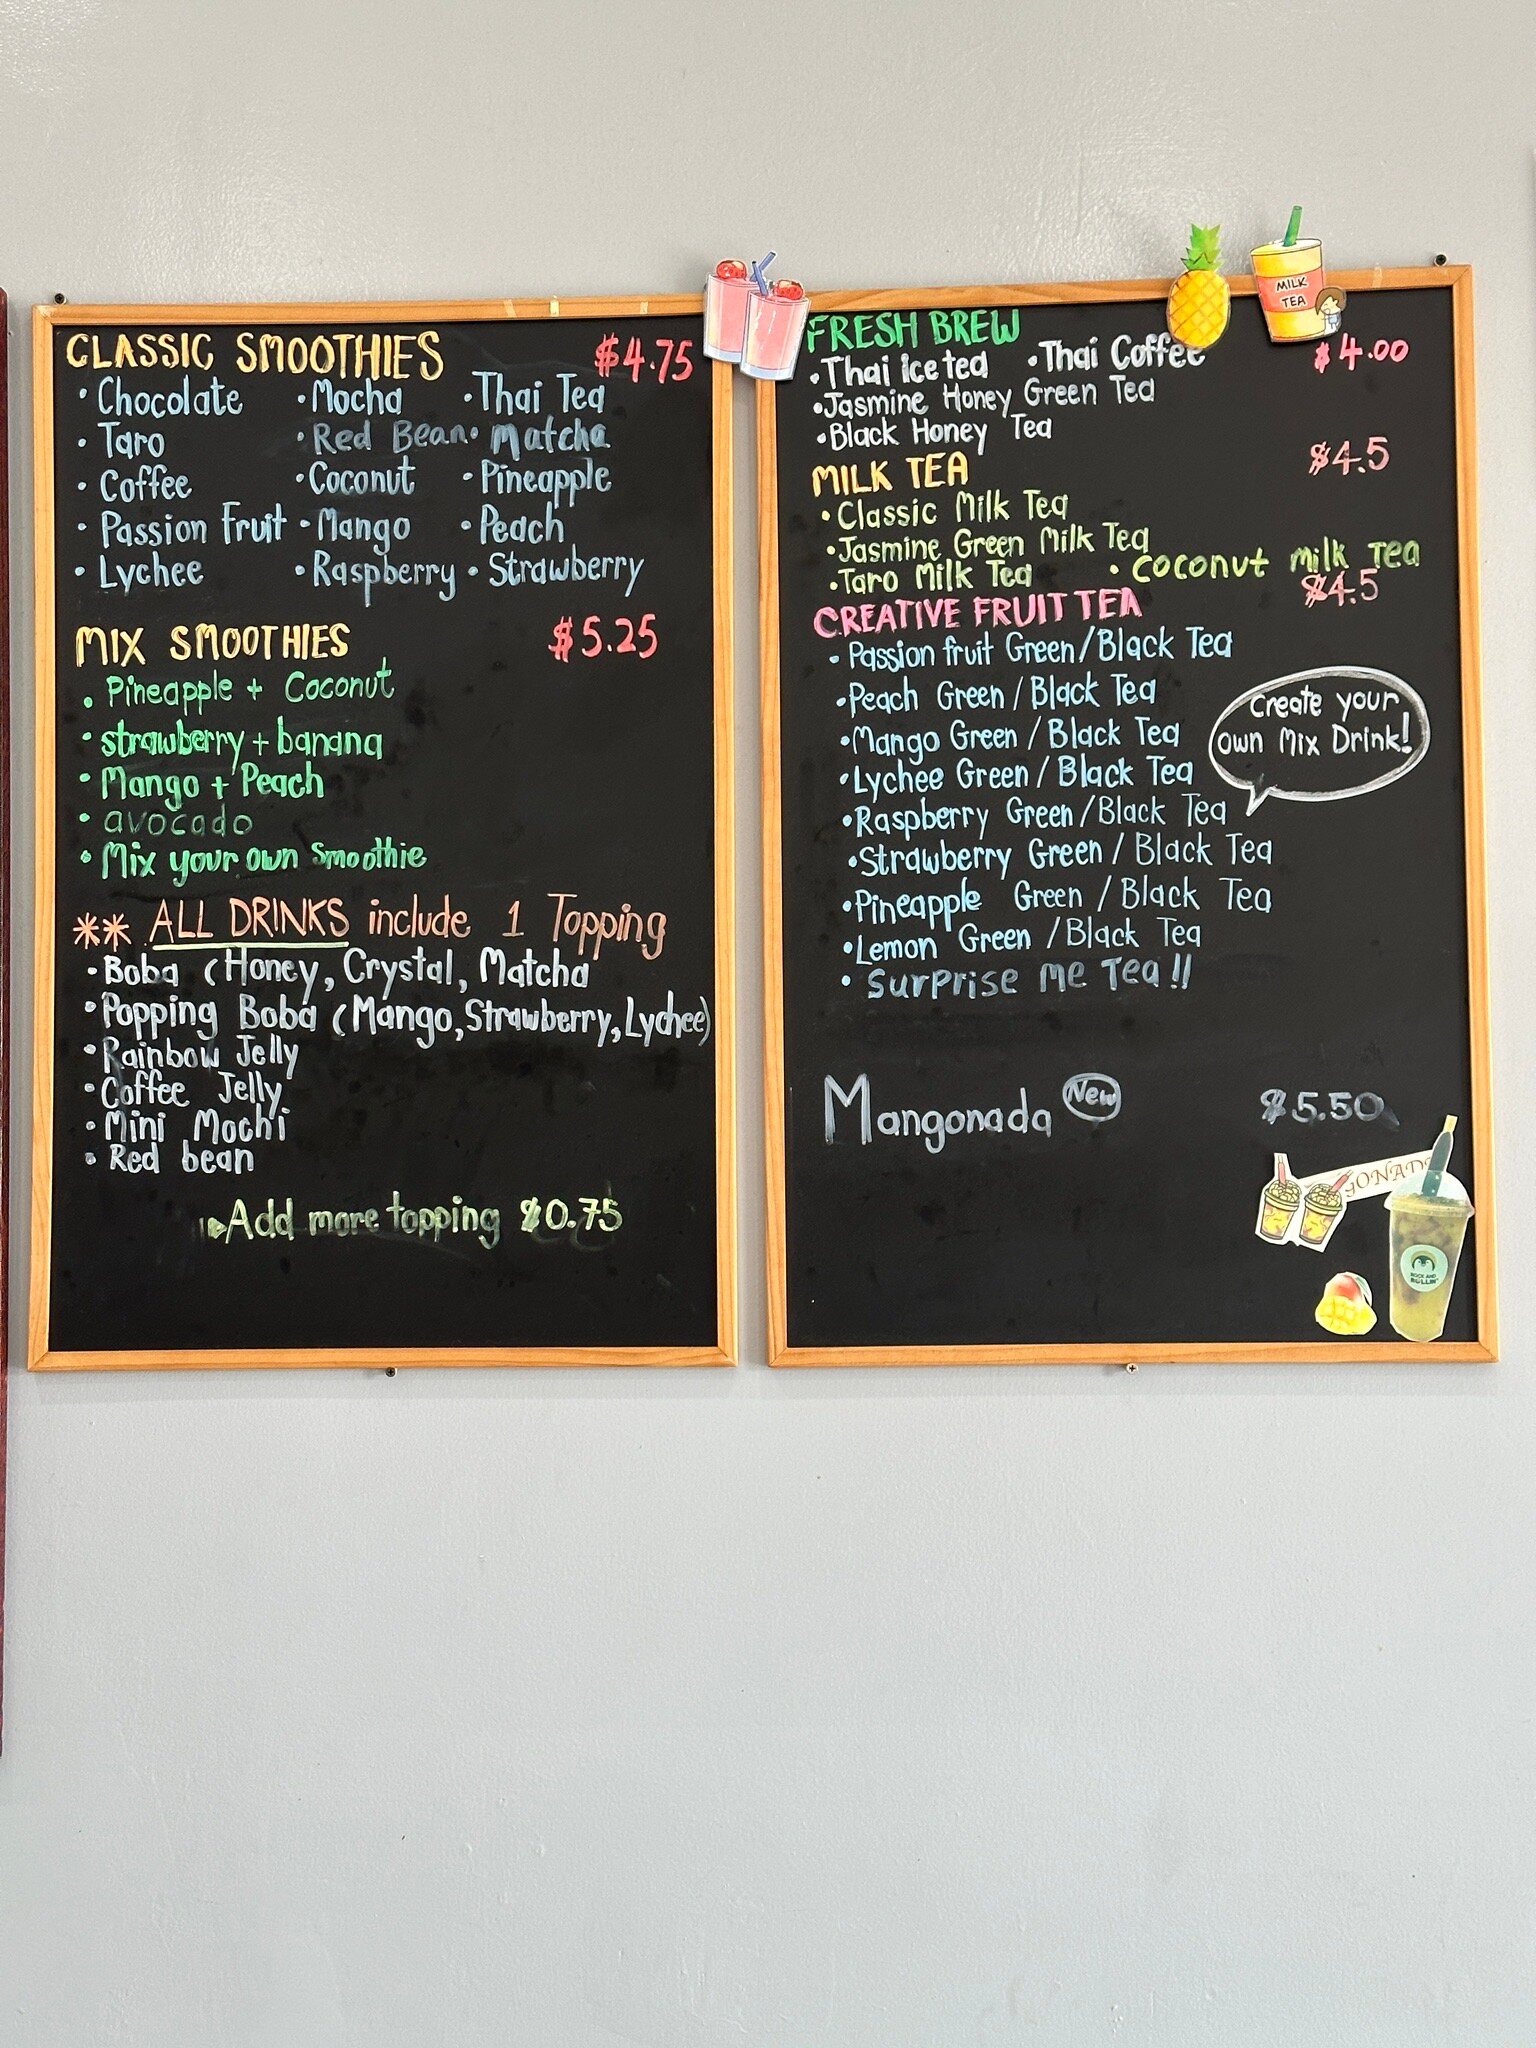 CLASSIC SMOOTHIES $4.75
• Chocolate • Mocha • Thai Tea
• Taro • Red Bean • Matcha
• Coffee • Coconut • Pineapple
• Passion Fruit • Mango • Peach
• Lychee • Raspberry • Strawberry
MIX SMOOTHIES $5.25
• Pineapple + Coconut
• strawberry + banana
• Mango + Peach
• avocado
• Mix your own Smoothie
** ALL DRINKS include 1 Topping
• Boba (Honey, Crystal, Matcha
• Popping Boba (Mango, Strawberry, Lychee)
• Rainbow Jelly
• Coffee Jelly
• Mini Mochi
• Red bean
Add more topping $0.75
FRESH BREW
• Thai Ice tea • Thai Coffee $4.00
• Jasmine Honey Green Tea
• Black Honey Tea
MILK TEA $4.5
• Classic Milk Tea
• Jasmine Green Milk Tea
• Taro Milk Tea • Coconut Milk Tea
CREATIVE FRUIT TEA $4.5
• Passion fruit Green/Black Tea
• Peach Green/Black Tea
• Mango Green/Black Tea
• Lychee Green/Black Tea
• Raspberry Green/Black Tea
• Strawberry Green/Black Tea
• Pineapple Green/Black Tea
• Lemon Green/Black Tea
• Surprise Me Tea!!
Create your
own Mix Drink!
Mangonada New $5.50
MILK
TEA
GONAD
ROCK AND
ROLLIN'